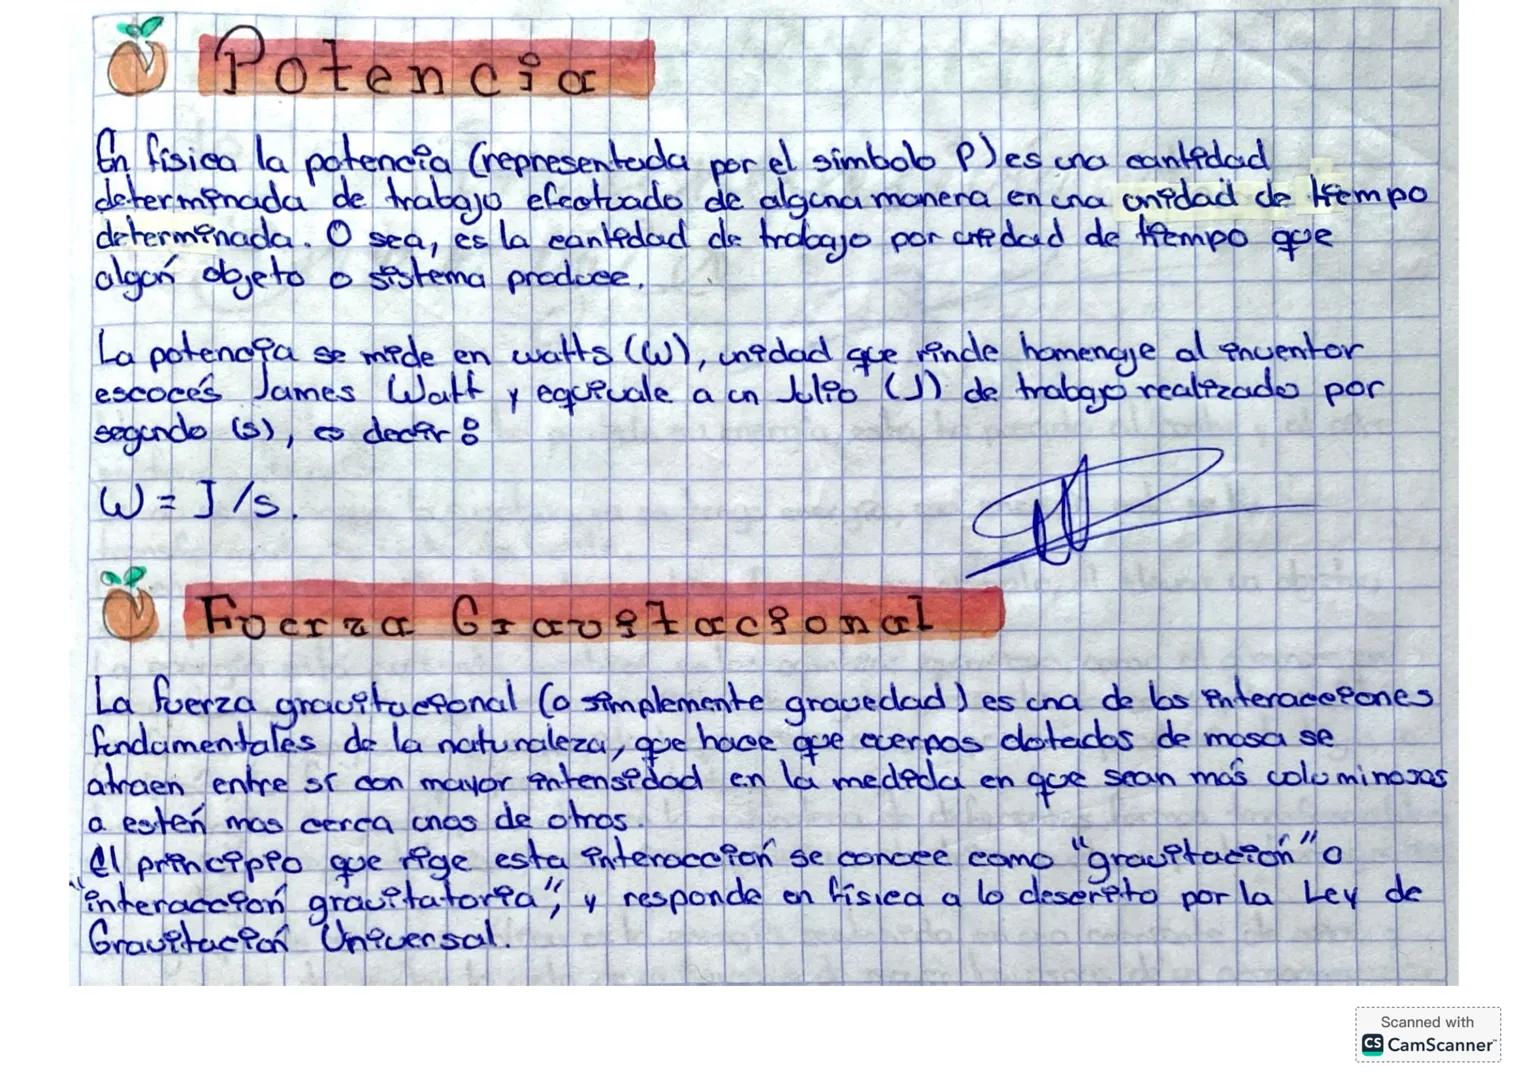 Potencia
En física la potencia (representada por el simbolo P) es una cantidad
determinada de trabajo efectuado de alguna manera en una unidad de tiempo
determinada. O sea, es la cantidad de trabajo por unidad de tiempo que
algún objeto o sistema produce.
La potencia se mide en watts (W), unidad que rinde homenaje al inventor
escocés James Watt y equivale a un Julio (J) de trabajo realizado por
segundo (s), es decir:
W = J/s.
Fuerza Gravitacional
La fuerza gravitacional (o simplemente gravedad) es una de las interacciones
fundamentales de la naturaleza, que hace que cuerpos dotados de masa se
atraen entre sí con mayor intensidad en la medida en que sean más voluminosas
o estén mas cerca unos de otros.
El principio que rige esta interacción se conoce como "gravitación" o
"interacción gravitatoria", y responde en física a lo descrito por la Ley de
Gravitación Universal.
Scanned with
CS CamScanner